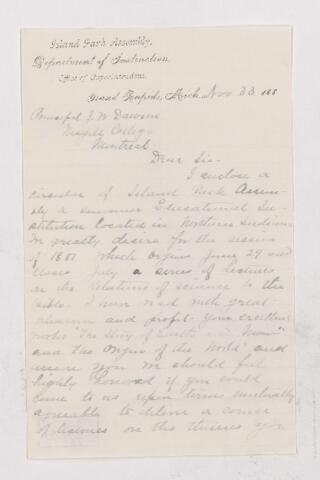 Island Park Assembly.
Department of Instruction.
Office of Superintendent.
Grand Rapids, Mich. Nov 23 188
Principal J. W. Dawson
McGill College
Montreal
Dear Sir
I enclose a
circular of Island Park Assem-
bly a summer Educational In-
stitution located in Northern Indiana
We greatly desire for the season
of 1881 which opens June 29 and
closes July a series of Lectures
on the Relations of science to the
Bible. I have read with great
pleasure and profit your excellent
works "The Story of Earth and Man"
and "The Origin of the World" and
assure you we should feel
highly honored if you could
come to us upon terms mutually
agreeable to deliver a course
of lectures on the themes you